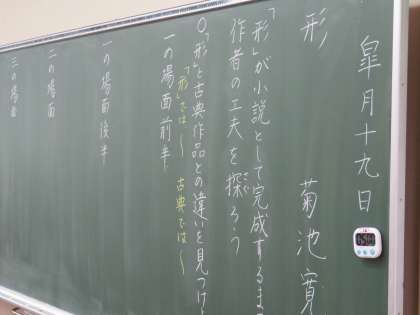 皐月十九日
形　菊池寛
「形」が小説として完成するま
作者の工夫を探ろう
○「形」と古典作品との違いを見つけ
一の場面前半
「形」では〜　古典では〜
一の場面後半
二の場面
三の場面